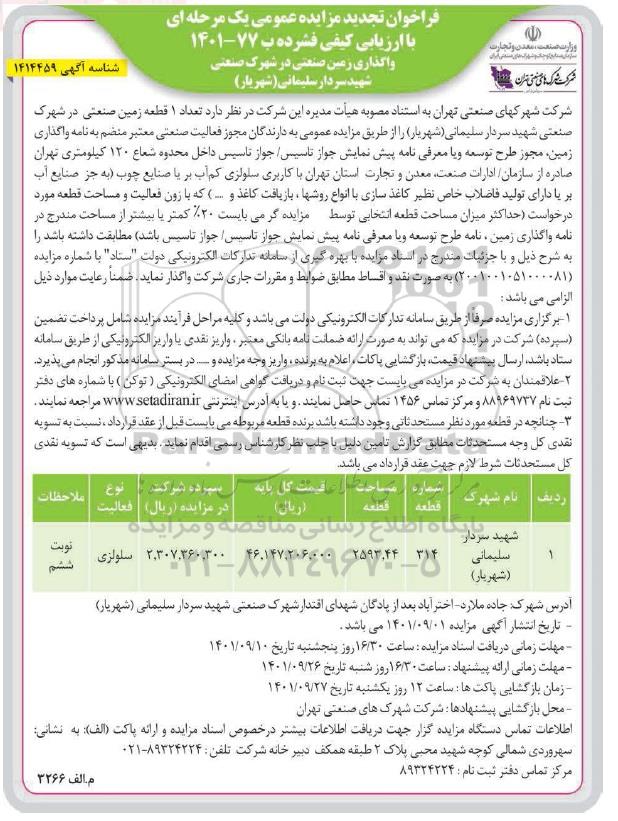 فراخوان تجدید مزایده عمومی یک مرحله ای
با ارزیابی کیفی فشرده ب ۷۷-۱۴۰۱
واگذاری زمین صنعتی در شهرک صنعتی
شهید سردار سلیمانی (شهریار)
شناسه آگهی ۱۴۱۴۴۵۹
وزارت صنعت، معدن و تجارت
سازمان صنایع کوچک و شهرک های صنعتی ایران
شرکت شهرک های صنعتی تهران
شرکت شهرکهای صنعتی تهران به استناد مصوبه هیأت مدیره این شرکت در نظر دارد تعداد ۱ قطعه زمین صنعتی در شهرک
صنعتی شهید سردار سلیمانی(شهریار) را از طریق مزایده عمومی به دارندگان مجوز فعالیت صنعتی معتبر منضم به نامه واگذاری
زمین، مجوز طرح توسعه ویا معرفی نامه پیش نمایش جواز تاسیس/ جواز تاسیس داخل محدوده شعاع ۱۲۰ کیلومتری تهران
صادره از سازمان/ ادارات صنعت، معدن و تجارت استان تهران با کاربری سلولزی کم‌آب بر یا صنایع چوب (به جز صنایع آب
بر یا دارای تولید فاضلاب خاص نظیر کاغذ سازی با انواع روشها ، بازیافت کاغذ و .... ) که با زون فعالیت و مساحت قطعه مورد
درخواست (حداکثر میزان مساحت قطعه انتخابی توسط مزایده گر می بایست ۲۰٪ کمتر یا بیشتر از مساحت مندرج در
نامه واگذاری زمین ، نامه طرح توسعه ویا معرفی نامه پیش نمایش جواز تاسیس/ جواز تاسیس باشد) مطابقت داشته باشد را
به شرح ذیل و با جزئیات مندرج در اسناد مزایده با بهره گیری از سامانه تدارکات الکترونیکی دولت "ستاد" با شماره مزایده
(۲۰۰۱۰۰۱۰۵۱۰۰۰۰۸۱) به صورت نقد و اقساط مطابق ضوابط و مقررات جاری شرکت واگذار نماید . ضمناً رعایت موارد ذیل
الزامی می باشد :
۱-برگزاری مزایده صرفا از طریق سامانه تدارکات الکترونیکی دولت می باشد و کلیه مراحل فرآیند مزایده شامل پرداخت تضمین
(سپرده) شرکت در مزایده که می تواند به صورت ارائه ضمانت نامه بانکی معتبر ، واریز نقدی یا واریز الکترونیکی از طریق سامانه
ستاد باشد، ارسال پیشنهاد قیمت، بازگشایی پاکات ، اعلام به برنده ، واریز وجه مزایده و .... در بستر سامانه مذکور انجام می‌پذیرد.
۲-علاقمندان به شرکت در مزایده می بایست جهت ثبت نام و دریافت گواهی امضای الکترونیکی ( توکن ) با شماره های دفتر
ثبت نام ۸۸۹۶۹۷۳۷ و مرکز تماس ۱۴۵۶ تماس حاصل نمایند . و یا به آدرس اینترنتی www.setadiran.ir مراجعه نمایند .
۳- چنانچه در قطعه مورد نظر مستحدثاتی وجود داشته باشد برنده قطعه مربوطه می بایست قبل از عقد قرارداد ، نسبت به تسویه
نقدی کل وجه مستحدثات مطابق گزارش تامین دلیل با جلب نظر کارشناس رسمی اقدام نماید . بدیهی است که تسویه نقدی
کل مستحدثات شرط لازم جهت عقد قرارداد می باشد.
ردیف | نام شهرک | شماره قطعه | مساحت قطعه | قیمت کل پایه (ریال) | سپرده شرکت در مزایده (ریال) | نوع فعالیت | ملاحظات
۱ | شهید سردار سلیمانی (شهریار) | ۳۱۴ | ۲۵۹۳.۴۴ | ۴۶.۱۴۷.۲۰۶.۰۰۰ | ۲.۳۰۷.۳۶۰.۳۰۰ | سلولزی | نوبت ششم
پایگاه اطلاع رسانی مناقصه و مزایده
۰۲۱-۸۸۳۴۹۶۷۰-۵
آدرس شهرک: جاده ملارد- اخترآباد بعد از پادگان شهدای اقتدار شهرک صنعتی شهید سردار سلیمانی (شهریار)
- تاریخ انتشار آگهی مزایده ۱۴۰۱/۰۹/۰۱ می باشد .
- مهلت زمانی دریافت اسناد مزایده : ساعت ۱۶/۳۰ روز پنجشنبه تاریخ ۱۴۰۱/۰۹/۱۰
- مهلت زمانی ارائه پیشنهاد : ساعت۱۶/۳۰ روز شنبه تاریخ ۱۴۰۱/۰۹/۲۶
- زمان بازگشایی پاکت ها : ساعت ۱۲ روز یکشنبه تاریخ ۱۴۰۱/۰۹/۲۷
- محل بازگشایی پیشنهادها : شرکت شهرک های صنعتی تهران
اطلاعات تماس دستگاه مزایده گزار جهت دریافت اطلاعات بیشتر درخصوص اسناد مزایده و ارائه پاکت (الف): به نشانی:
سهروردی شمالی کوچه شهید محبی پلاک ۲ طبقه همکف دبیر خانه شرکت تلفن : ۸۹۳۲۴۲۲۴-۰۲۱
مرکز تماس دفتر ثبت نام : ۸۹۳۲۴۲۲۴
م.الف ۳۲۶۶